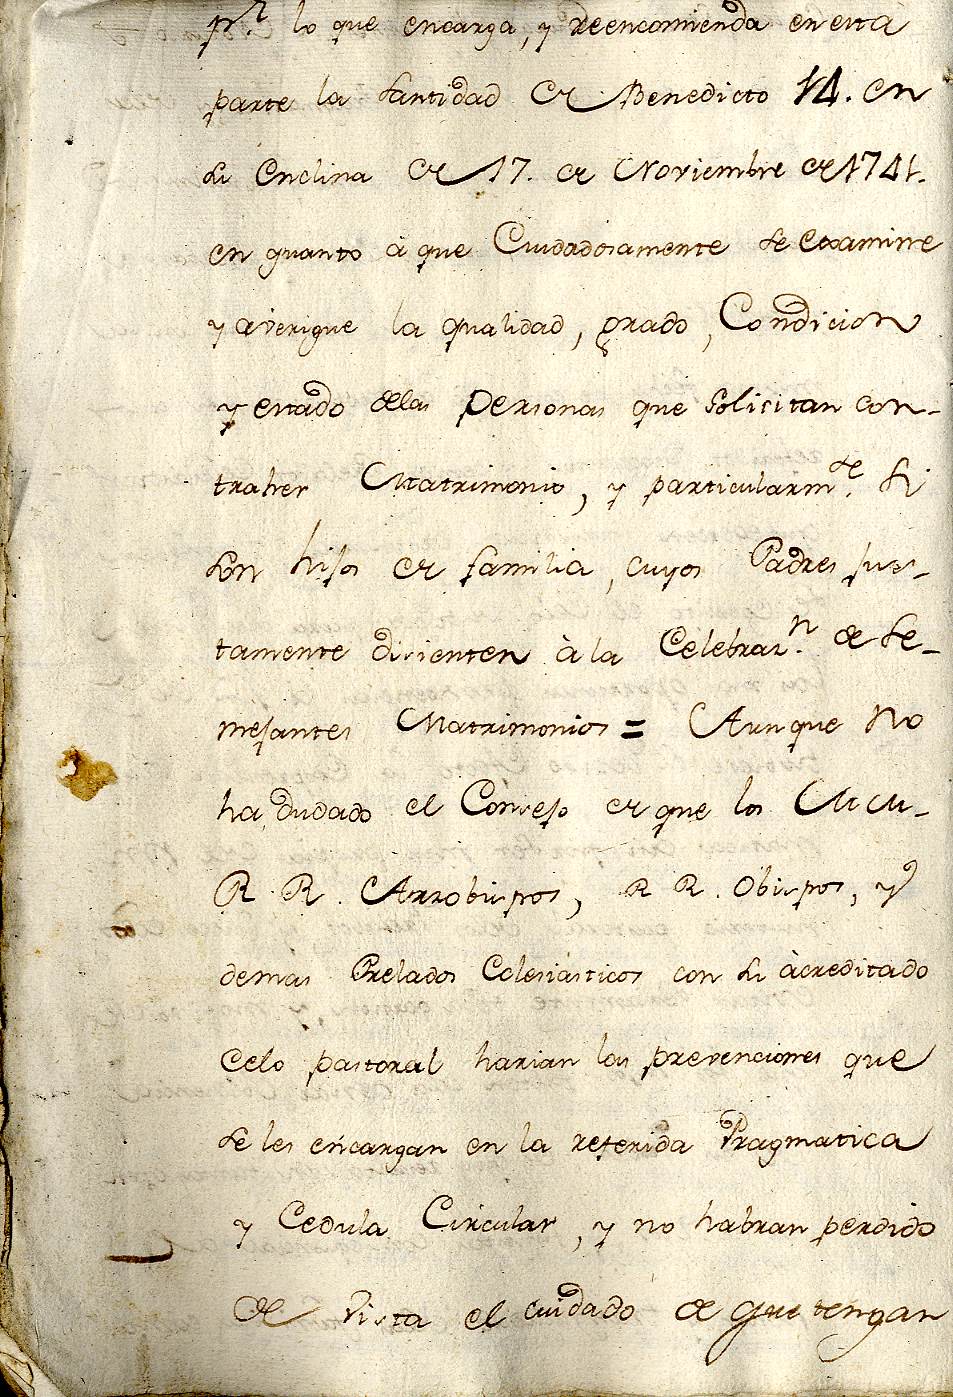 p.r lo que encarga, y reencomienda en esta
parte la Santidad de Benedicto 14. en
su Enclina de 17. de Noviembre de 1741.
en quanto à que Cuidadosamente se examine
y averigue la qualidad, grado, Condicion
y estado delas Personas que solicitan con-
traher Matrimonio, y particularm.te si
son hijos de familia, cuyos Padres jus-
tamente disienten à la Celebraz.n de se-
mejantes Matrimonios = Aunque no
ha dudado el Consejo de que los MM.
R. R. Arzobispos, R R. Obispos, y
demas Prelados Eclesiàsticos con su àcreditado
celo pastoral harian las prevenciones que
se les encargan en la referida Pragmatica
y Cedula Circular, y no habran perdido
de vista el cuidado de que tengan